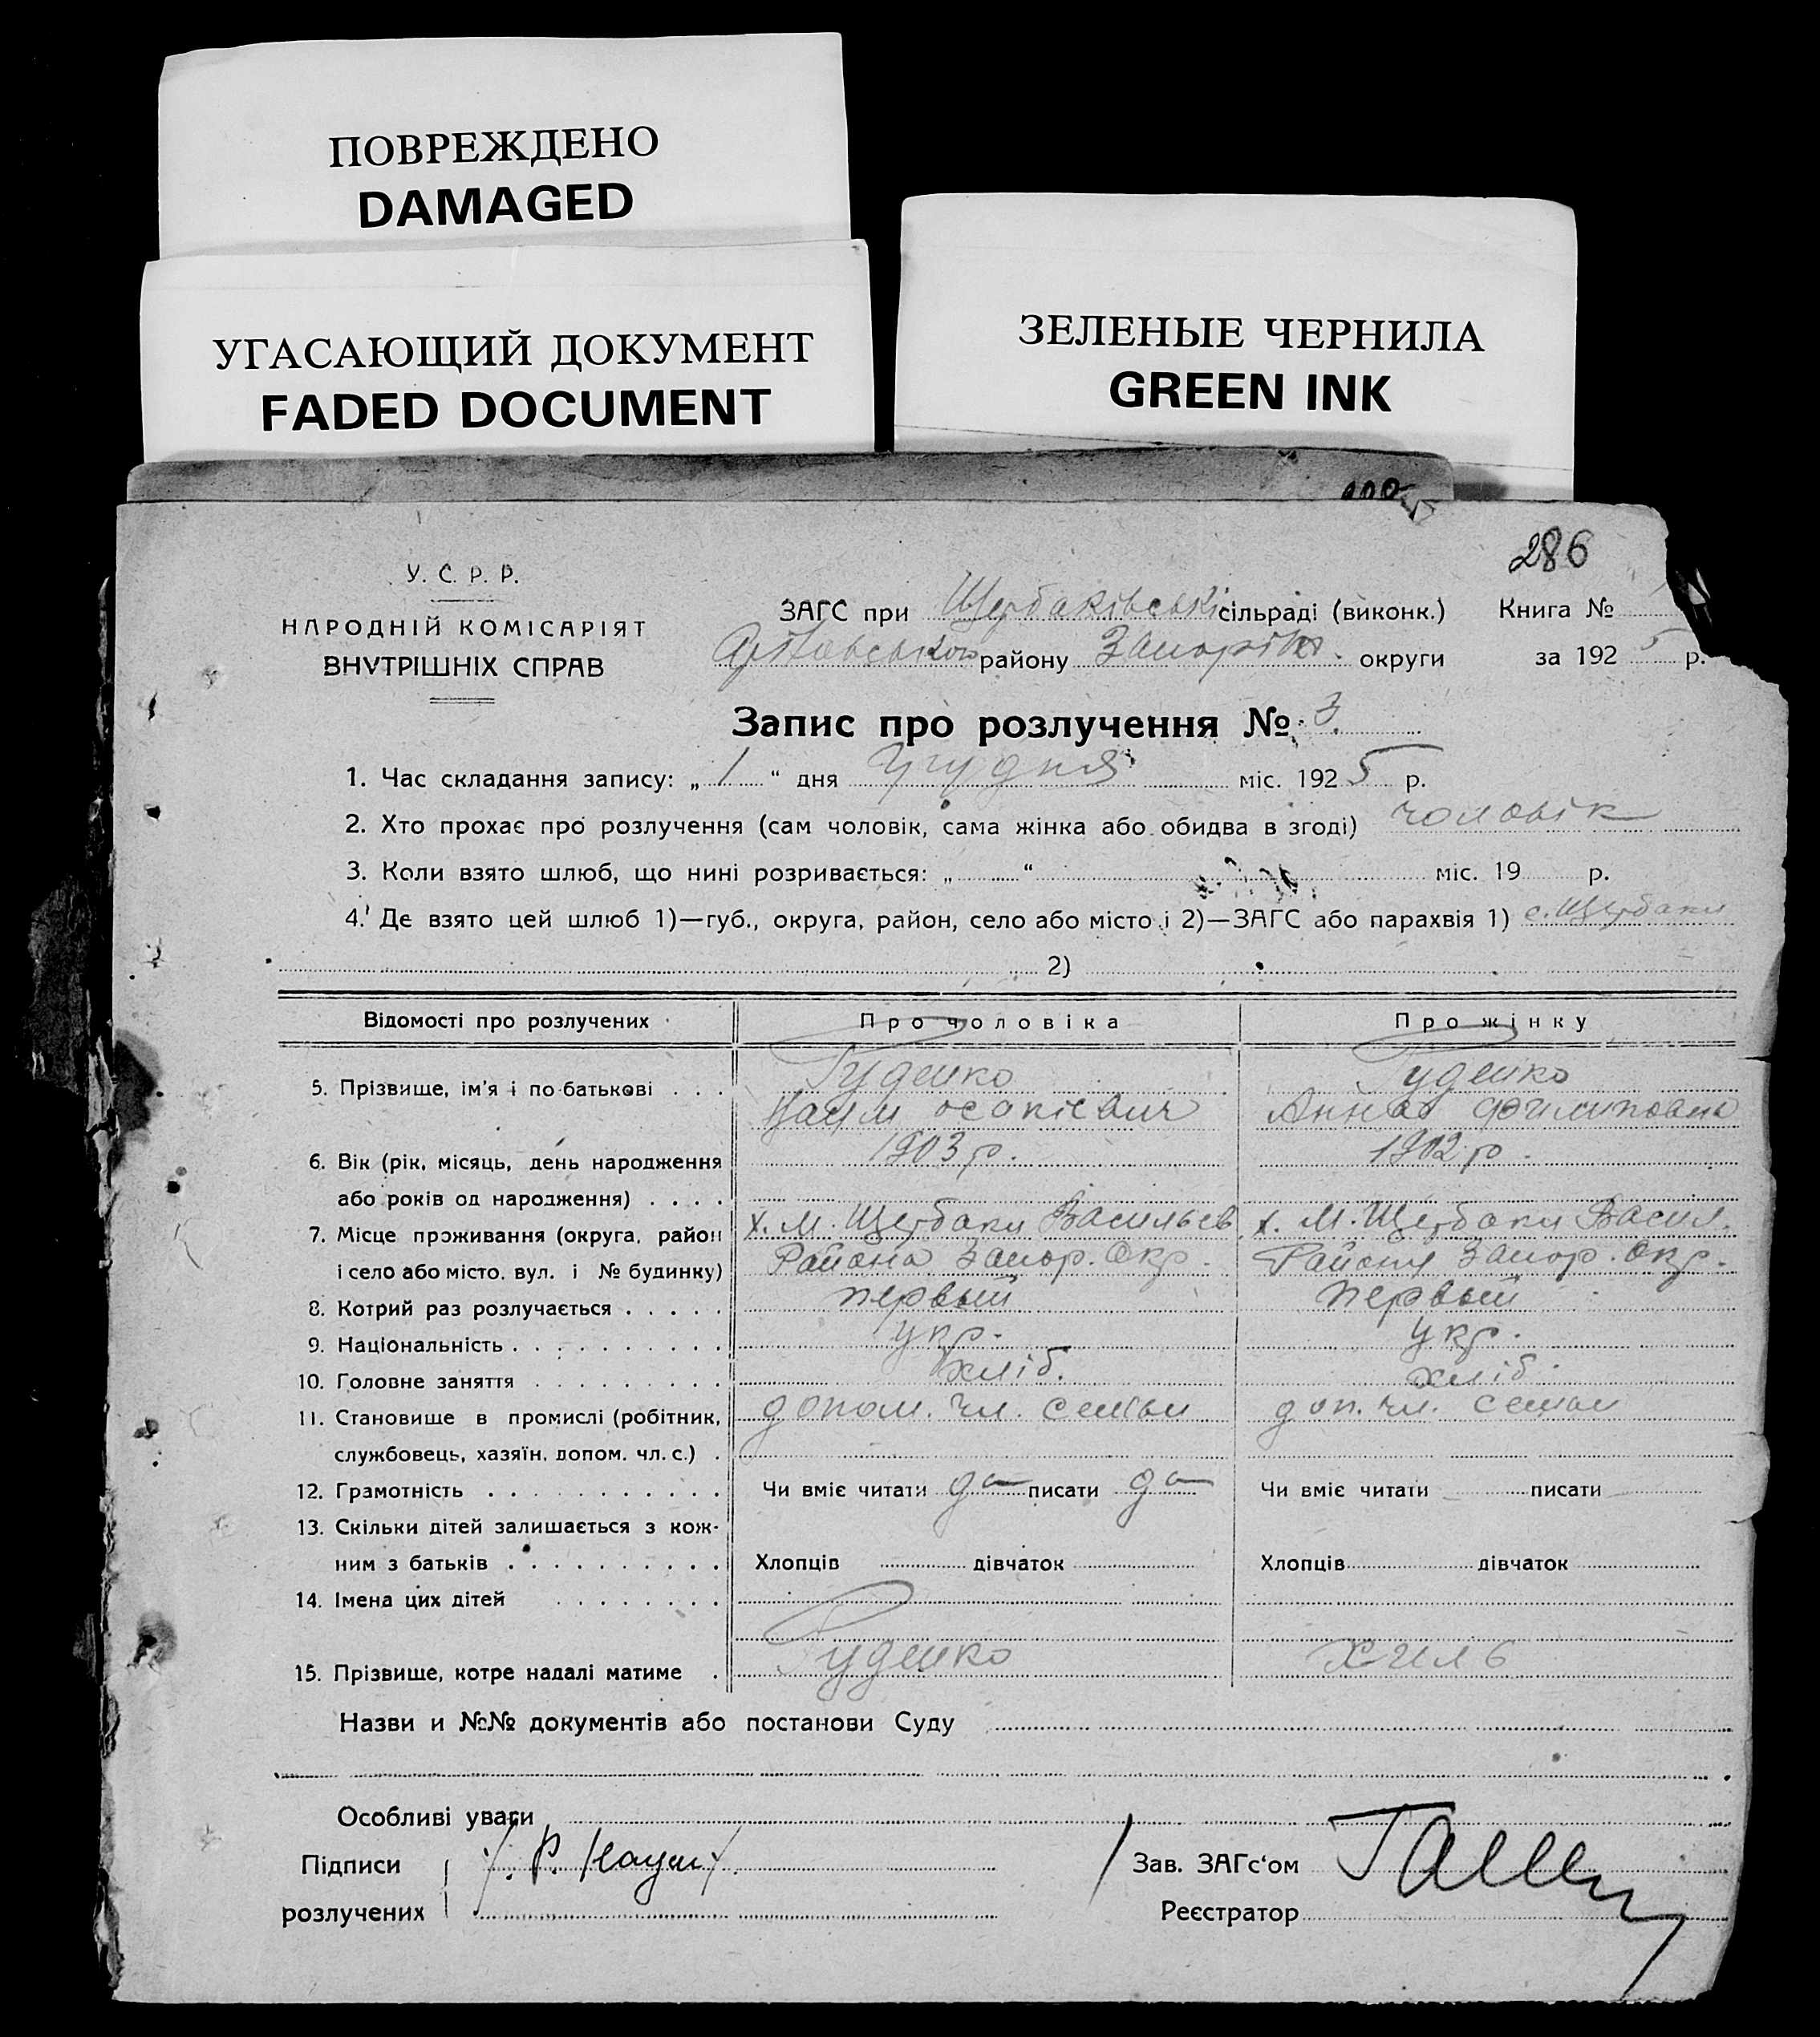 ПОВРЕЖДЕНО
DAMAGED
УГАСАЮЩИЙ ДОКУМЕНТ
FADED DOCUMENT
ЗЕЛЕНЫЕ ЧЕРНИЛА
GREEN INK
286
У. С. Р. Р.
НАРОДНІЙ КОМІСАРІЯТ
ВНУТРІШНІХ СПРАВ
ЗАГС при Щербаківські сільраді (виконк.) Книга №
району Запоріж. округи за 192 5 р.
Запис про розлучення № 3.
1. Час складання запису: „ 1 “ дня грудня міс. 192 5 р.
2. Хто прохає про розлучення (сам чоловік, сама жінка або обидва в згоді) чоловік
3. Коли взято шлюб, що нині розривається: „ “ міс. 19 р.
4. Де взято цей шлюб 1)—губ., округа, район, село або місто і 2)—ЗАГС або парахвія 1) с. Щербаки
2)
Відомості про розлучених Про чоловіка Про жінку
Руденко Руденко
5. Прізвище, ім'я і по батькові . . .
Наум Осапієвич Анна Филиповна
6. Вік (рік, місяць, день народження 1903 р. 1902 р.
або років од народження) . . . .
7. Місце проживання (округа, район х. М. Щербаки Васильев х. М. Щербаки Васил.
і село або місто, вул. і № будинку) Района Запор. Окр. Района Запор. Окр.
8. Котрий раз розлучається . . . . . первый первый
9. Національність . . . . . . . . . . укр. укр.
10. Головне заняття . . . . . . . . . хліб. хліб.
11. Становище в промислі (робітник, допом. чл. семьи доп. чл. семьи
службовець, хазяїн, допом. чл. с.) .
12. Грамотність . . . . . . . . . . . Чи вміє читати да писати да Чи вміє читати писати
13. Скільки дітей залишається з кож-
ним з батьків . . . . . . . . . . Хлопців дівчаток Хлопців дівчаток
14. Імена цих дітей . . . . . . . .
15. Прізвище, котре надалі матиме . Руденко Хиль
Назви и №№ документів або постанови Суду
Особливі уваги
Підписи /. Р. Наум /. Зав. ЗАГс'ом
розлучених Реєстратор